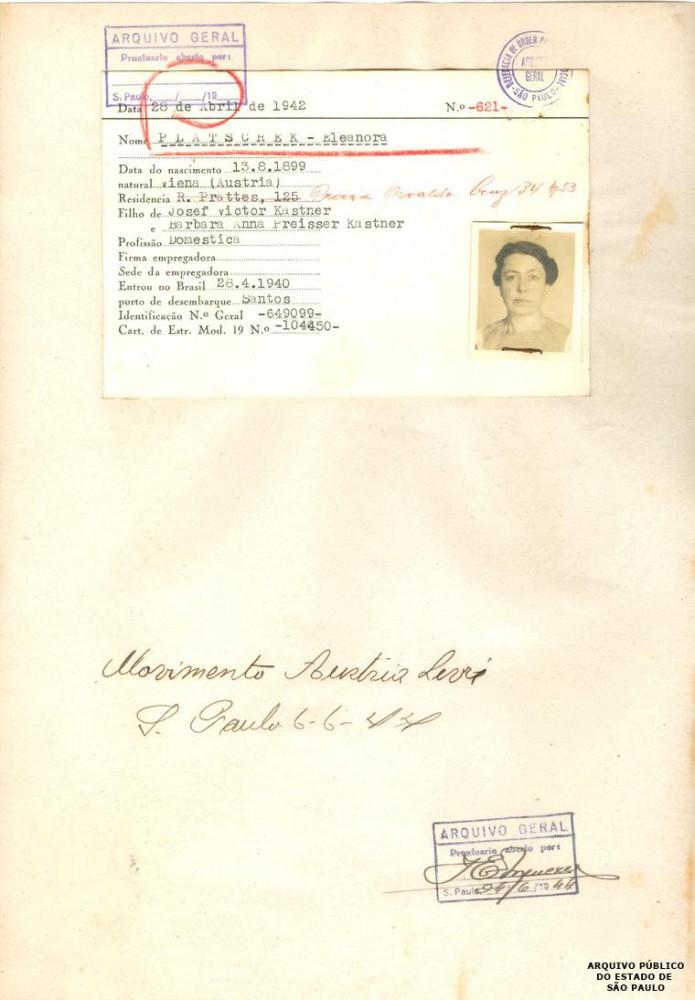 ARQUIVO GERAL
Prontuario aberto por:
S. Paulo, / /19
DELEGACIA DE ORDEM
ARQUIVO
GERAL
SÃO PAULO
Data 28 de Abril de 1942 N.o -621-
Nome P L A T S C H E K - Eleanora
Data do nascimento 13.8.1899
natural Viena (Austria)
Residencia R. Prattes, 125 Osvaldo Cruz 34
Filho de Josef Victor Kastner
e Barbara Anna Preisser Kastner
Profissão Domestica
Firma empregadora
Sede da empregadora
Entrou no Brasil 28.4.1940
porto de desembarque Santos
Identificação N.o Geral -649099-
Cart. de Estr. Mod. 19 N.o -104450-
Movimento Austria Livre
S. Paulo 6-6-44
ARQUIVO GERAL
Prontuario aberto por:
S. Paulo, 24/6/1944
ARQUIVO PÚBLICO
DO ESTADO DE
SÃO PAULO